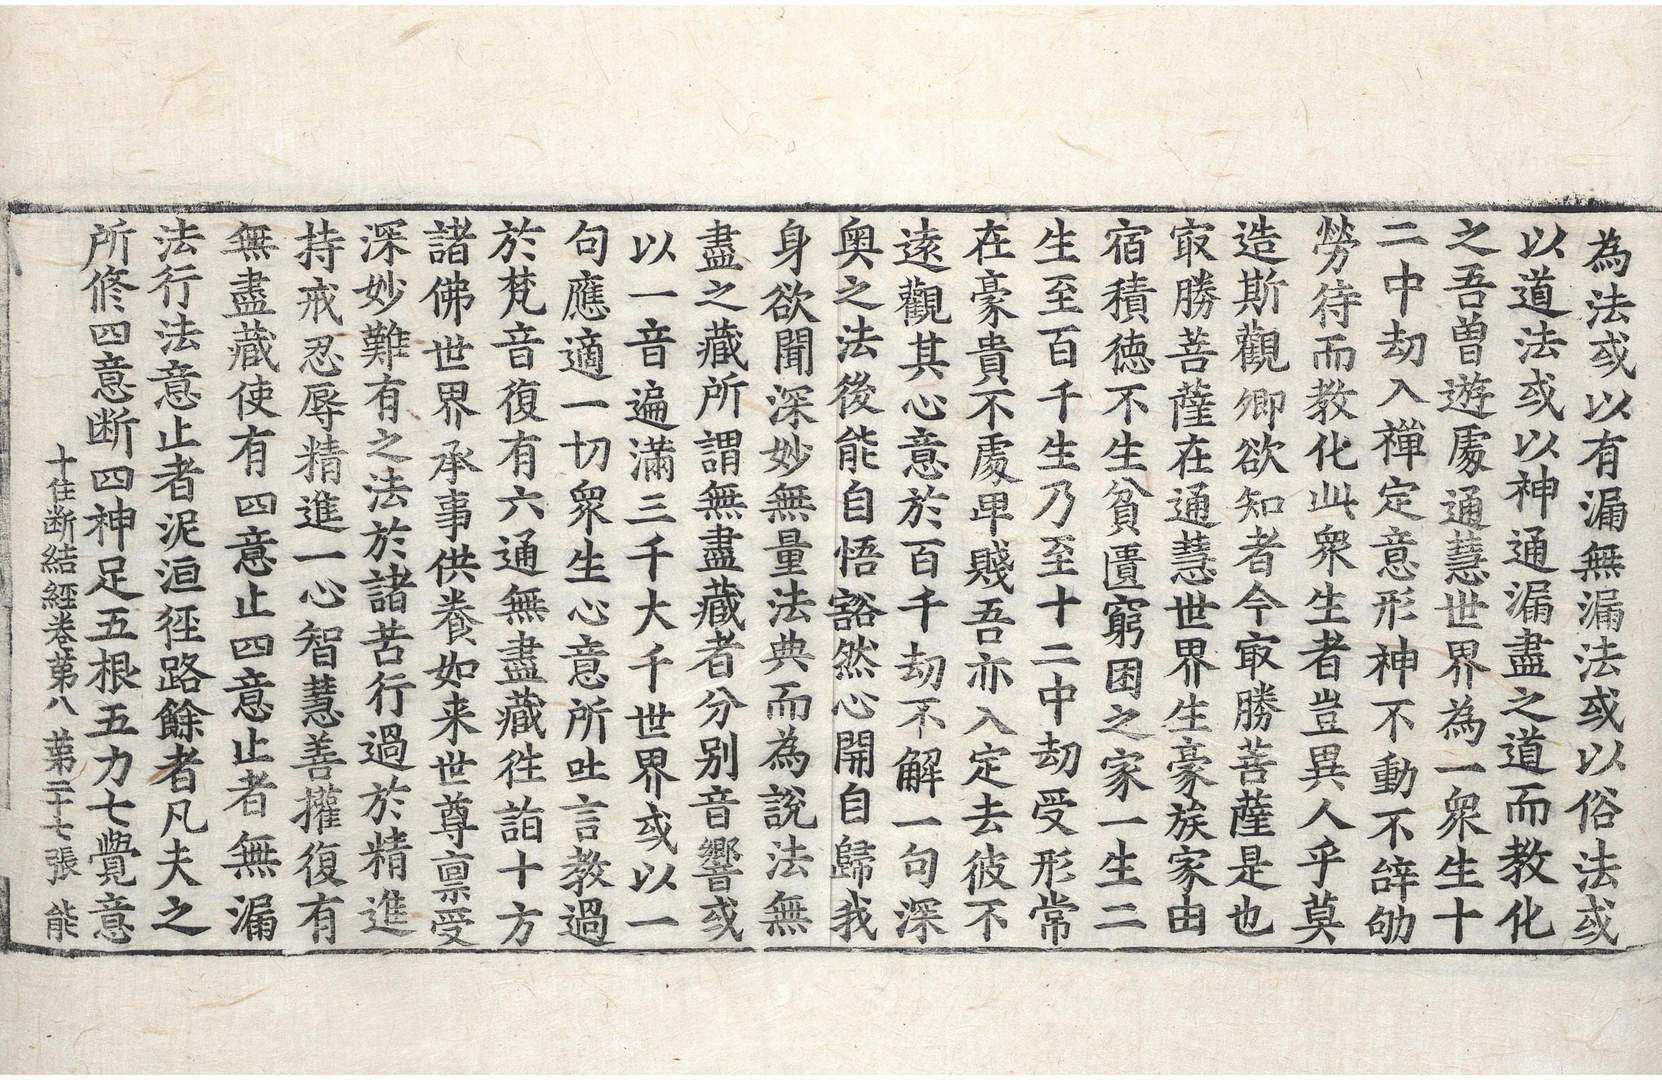 為法或以有漏無漏法或以俗法或
以道法或以神通漏盡之道而教化
之吾曾遊處通慧世界為一衆生十
二中劫入禪定意形神不動不辞劬
勞待而教化此衆生者豈異人乎莫
造斯觀卿欲知者今㝡勝菩薩是也
㝡勝菩薩在通慧世界生豪族家由
宿積徳不生貧匱窮困之家一生二
生至百千生乃至十二中劫受形常
在豪貴不處卑賤吾亦入定去彼不
遠觀其心意於百千劫不解一句深
奥之法後能自悟豁然心開自歸我
身欲聞深妙無量法典而為說法無
盡之藏所謂無盡藏者分別音響或
以一音遍滿三千大千世界或以一
句應適一切衆生心意所吐言教過
於梵音復有六通無盡藏徃詣十方
諸佛世界承事供養如来世尊禀受
深妙難有之法於諸苦行過於精進
持戒忍辱精進一心智慧善權復有
無盡藏使有四意止四意止者無漏
法行法意止者泥洹徑路餘者凡夫之
所修四意断四神足五根五力七覺意
十住断結經卷第八　第二十七張　能